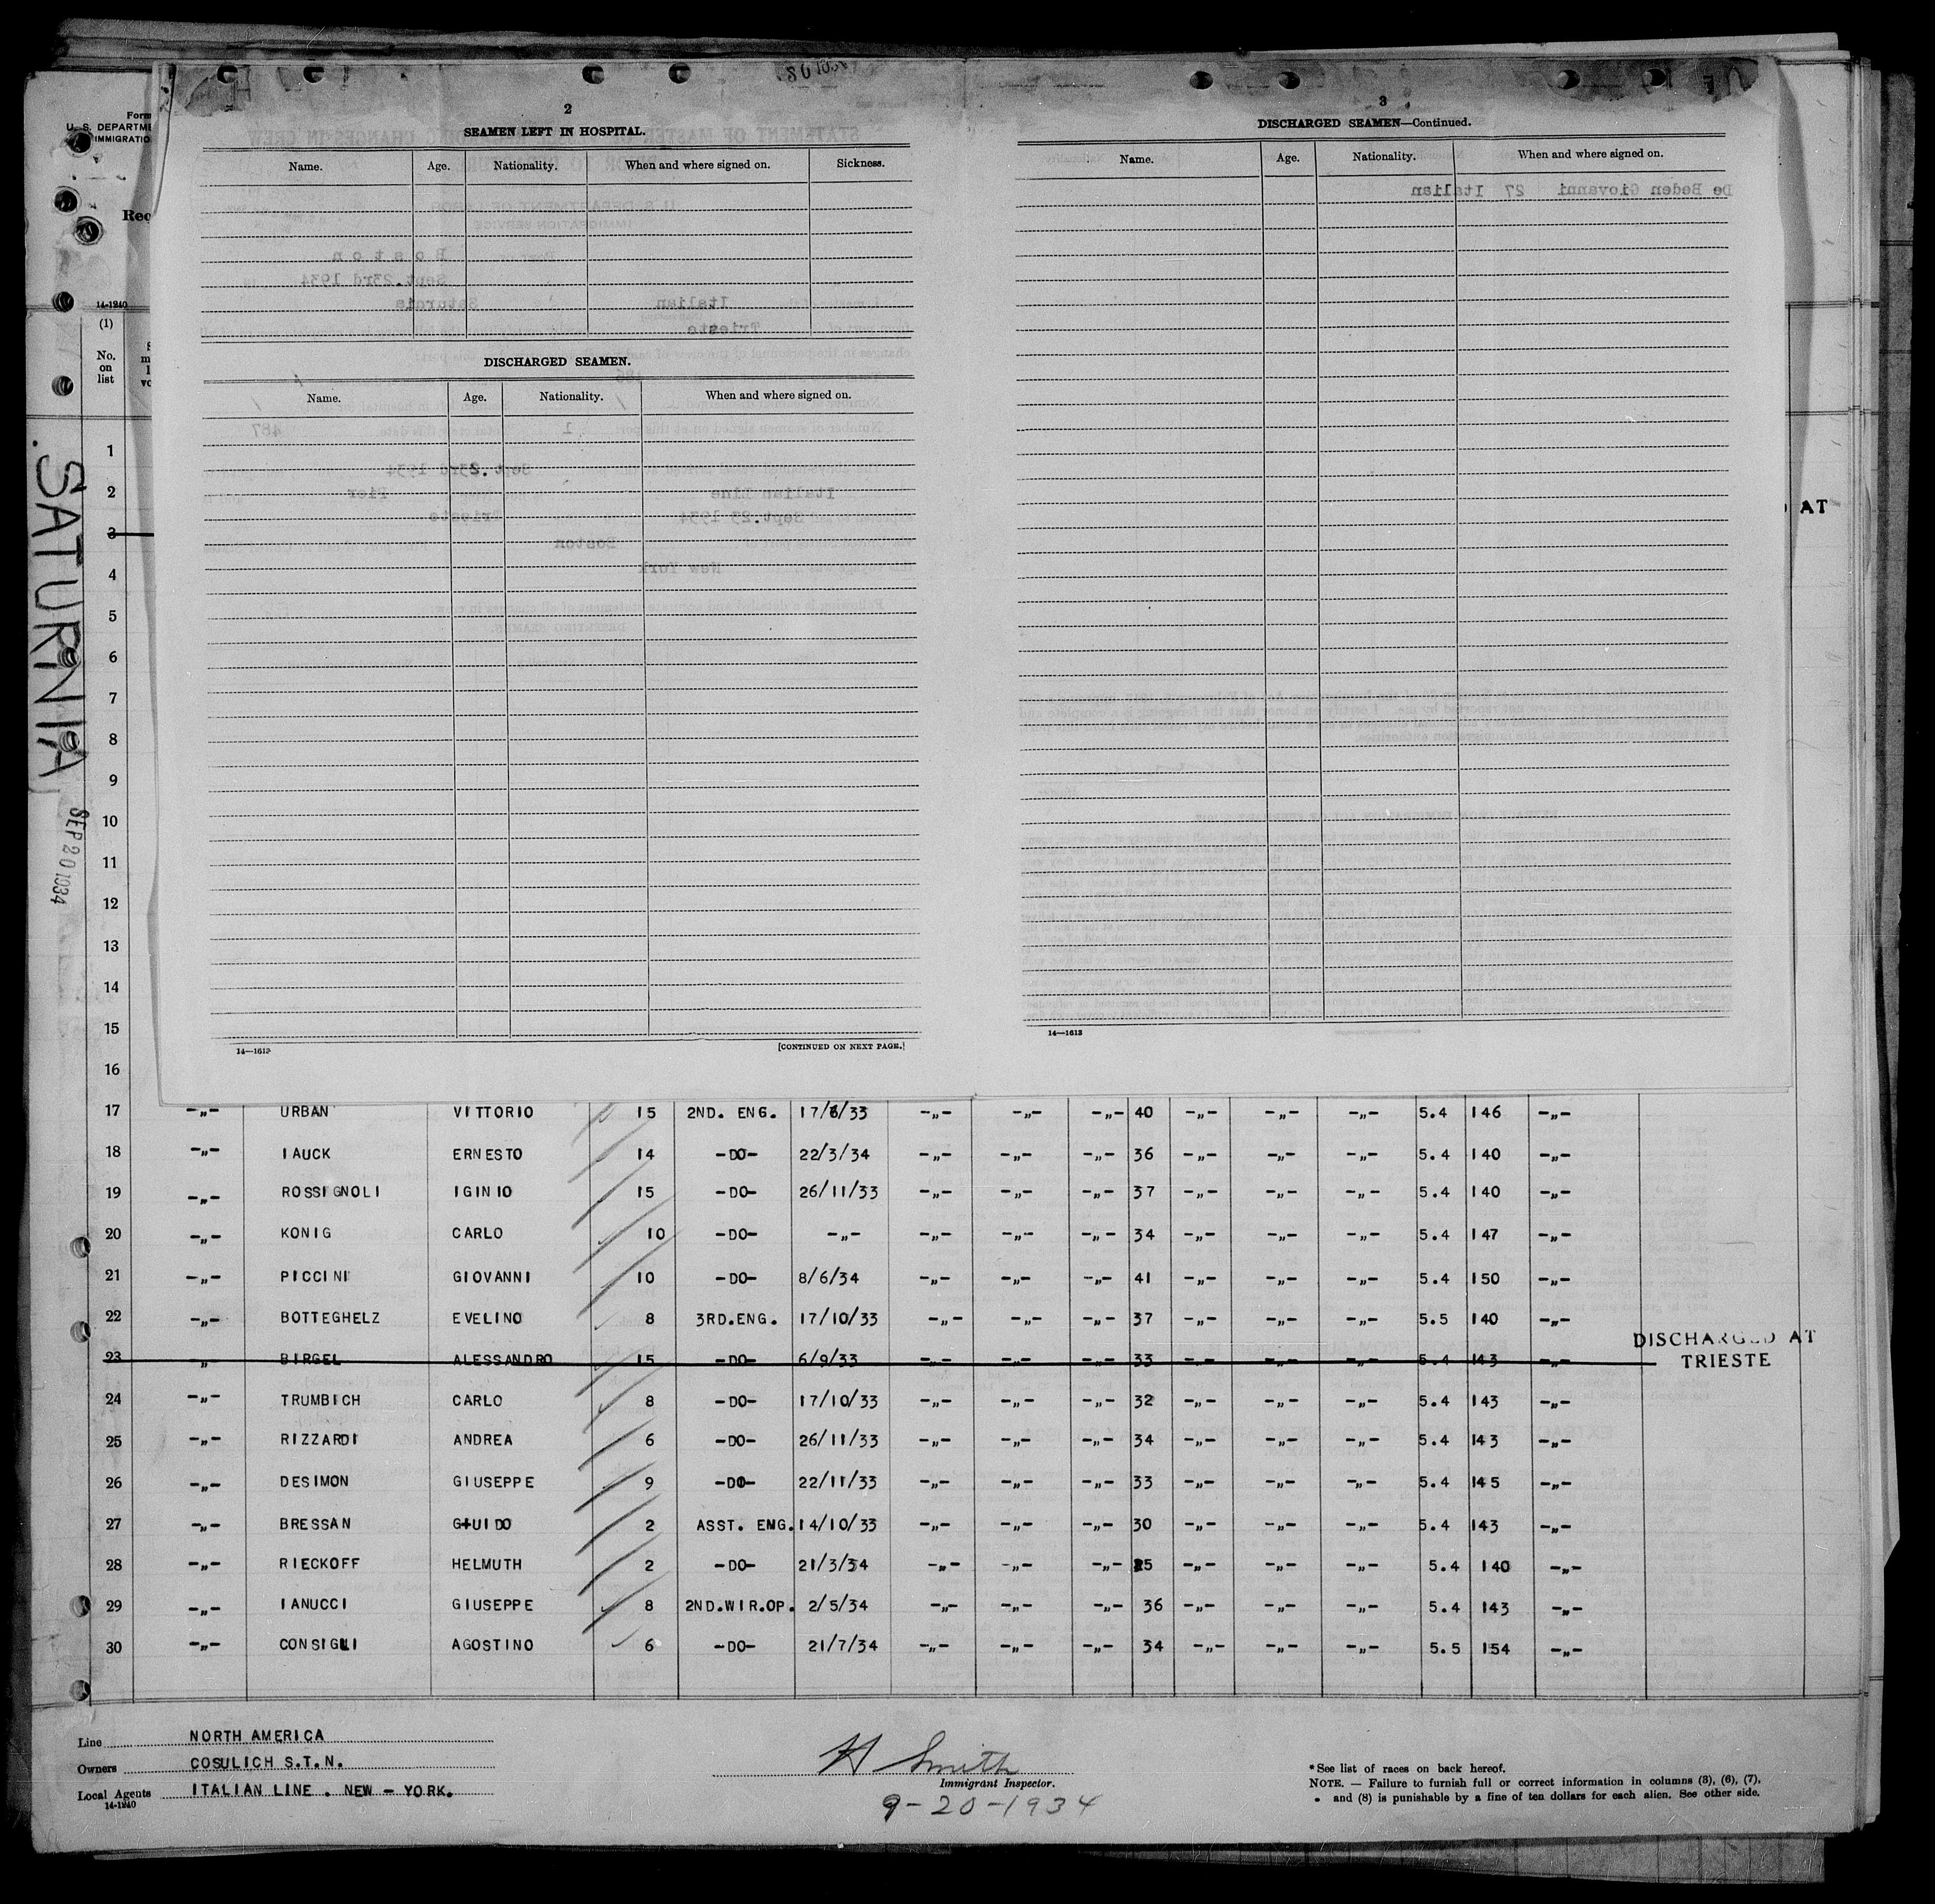 2
SEAMEN LEFT IN HOSPITAL.
Name. Age. Nationality. When and where signed on. Sickness.
DISCHARGED SEAMEN.
Name. Age. Nationality. When and where signed on.
14—1613
[CONTINUED ON NEXT PAGE.]
3
DISCHARGED SEAMEN—Continued.
Name. Age. Nationality. When and where signed on.
De Beden Giovanni 27 Italian
14—1613
Form
U. S. DEPARTME
IMMIGRATIO
Rec
14-1240
(1)
No.
on
list
SATURNIA
SEP 20 1934
AT
1
2
3
4
5
6
7
8
9
10
11
12
13
14
15
16
17 -„- URBAN VITTORIO 15 2ND. ENG. 17/6/33 -„- -„- -„- 40 -„- -„- -„- 5.4 146 -„-
18 -„- IAUCK ERNESTO 14 -DO- 22/3/34 -„- -„- -„- 36 -„- -„- -„- 5.4 140 -„-
19 -„- ROSSIGNOLI IGINIO 15 -DO- 26/11/33 -„- -„- -„- 37 -„- -„- -„- 5.4 140 -„-
20 -„- KONIG CARLO 10 -DO- -„- -„- -„- -„- 34 -„- -„- -„- 5.4 147 -„-
21 -„- PICCINI GIOVANNI 10 -DO- 8/6/34 -„- -„- -„- 41 -„- -„- -„- 5.4 150 -„-
22 -„- BOTTEGHELZ EVELINO 8 3RD.ENG. 17/10/33 -„- -„- -„- 37 -„- -„- -„- 5.5 140 -„-
23 „ BIRGEL ALESSANDRO 15 -DO- 6/9/33 -„- -„- -„- 33 -„- -„- -„- 5.4 143 -„- DISCHARGED AT
TRIESTE
24 -„- TRUMBICH CARLO 8 -DO- 17/10/33 -„- -„- -„- 32 -„- -„- -„- 5.4 143 -„-
25 -„- RIZZARDI ANDREA 6 -DO- 26/11/33 -„- -„- -„- 34 -„- -„- -„- 5.4 143 -„-
26 -„- DESIMON GIUSEPPE 9 -DO- 22/11/33 -„- -„- -„- 33 -„- -„- -„- 5.4 145 -„-
27 -„- BRESSAN GUIDO 2 ASST. ENG. 14/10/33 -„- -„- -„- 30 -„- -„- -„- 5.4 143 -„-
28 -„- RIECKOFF HELMUTH 2 -DO- 21/3/34 -„- -„- -„- 25 -„- -„- -„- 5.4 140 -„-
29 -„- IANUCCI GIUSEPPE 8 2ND.WIR.OP. 2/5/34 -„- -„- -„- 36 -„- -„- -„- 5.4 143 -„-
30 -„- CONSIGLI AGOSTINO 6 -DO- 21/7/34 -„- -„- -„- 34 -„- -„- -„- 5.5 154 -„-
Line NORTH AMERICA
Owners COSULICH S.T.N.
Local Agents ITALIAN LINE . NEW - YORK.
14-1240
H Smith
Immigrant Inspector.
9-20-1934
*See list of races on back hereof.
NOTE. — Failure to furnish full or correct information in columns (3), (6), (7),
and (8) is punishable by a fine of ten dollars for each alien. See other side.